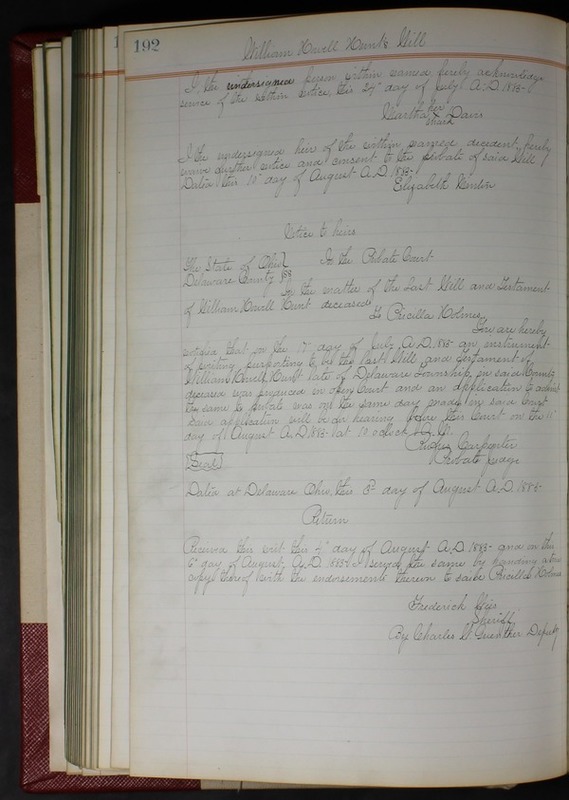 192
William Howell Hunt's Will
I, the undersigned person within named, hereby acknowledge
service of the within notice, this 24" day of July A.D. 1883-
her
Martha Davis
mark
I the undersigned heir of the within named decedent, hereby
waive further notice and consent to the probate of said Will
Dated this 10" day of August A.D. 1883-
Elizabeth
Notice to heirs
The State of Ohio
Delaware County } SS
In the Probate Court
In the matter of the Last Will and Testament
of William Howell Hunt deceased
To Priscilla Holmes
You are hereby
notified that on the 17" day of July A.D. 1883- an instrument
of writing, purporting to be the last Will and Testament of
William Howell Hunt late of Delaware Township, in said County
deceased was produced in open Court and an application to admit
the same to probate was on the same day made in said Court
Said application will be for hearing before this Court on the 11"
day of August A.D. 1883- at 10 o'clock A.M.
Carpenter
Probate Judge
Seal
Dated at Delaware Ohio, this 3" day of August A.D. 1883-
Return
Received this writ this 4" day of August A.D. 1883- and on the
6" day of August A.D. 1883- I served the same by handing a true
copy thereof with the endorsements thereon to said Priscilla Holmes
Frederick
Sheriff
By Charles G Guenther Deputy